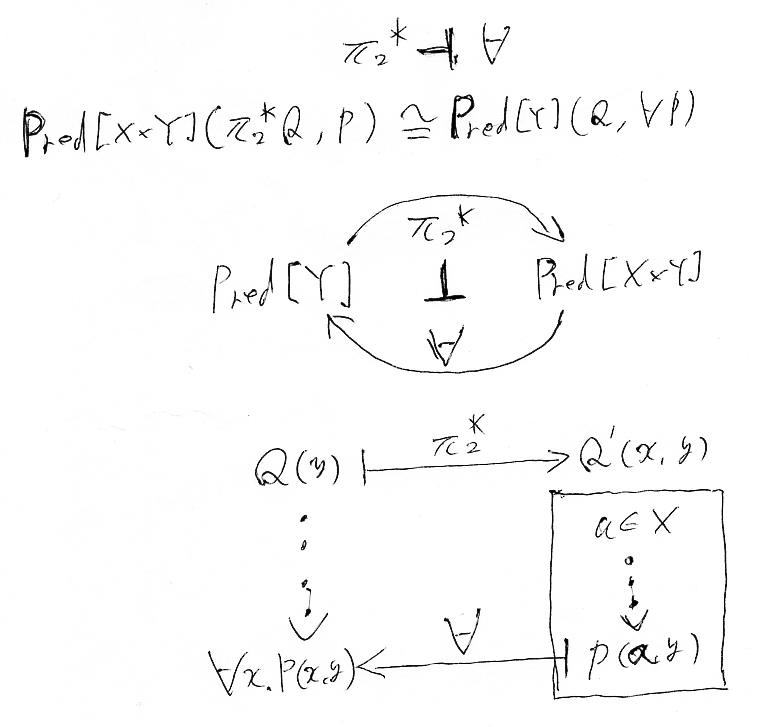 π₂* ⊣ ∀
Pred[X×Y](π₂*Q, P) ≅ Pred[Y](Q, ∀P)
π₂*
Pred[Y] ⊥ Pred[X×Y]
∀
π₂*
Q(y) ↦ Q'(x, y)
a∈X
∀
∀x.P(x,y) P(a,y)